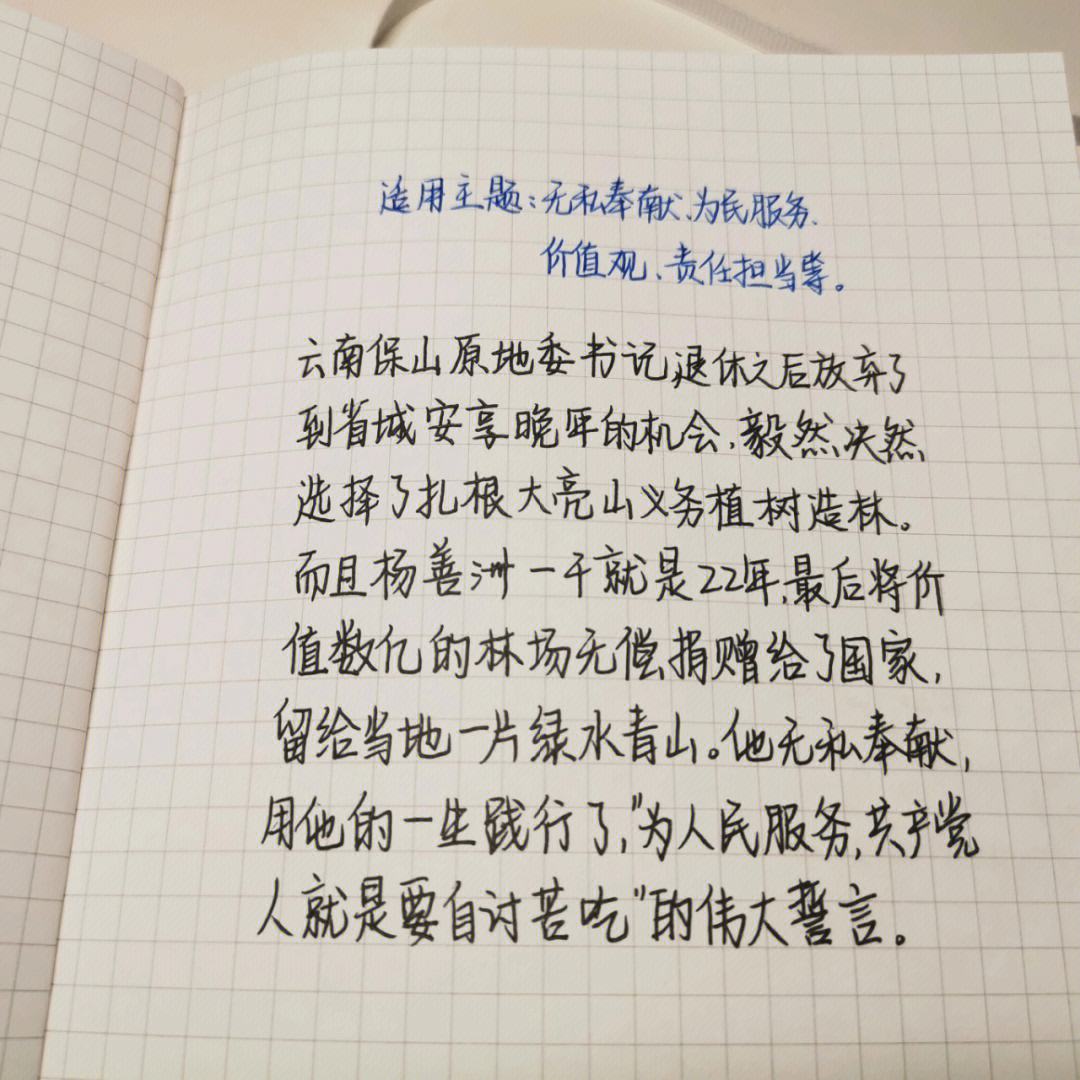 适用主题:无私奉献、为民服务、
价值观、责任担当等。
云南保山原地委书记,退休之后放弃了
到省城安享晚年的机会,毅然决然
选择了扎根大亮山义务植树造林。
而且杨善洲一干就是22年,最后将价
值数亿的林场无偿捐赠给了国家,
留给当地一片绿水青山。他无私奉献,
用他的一生践行了,"为人民服务,共产党
人就是要自讨苦吃"的伟大誓言。